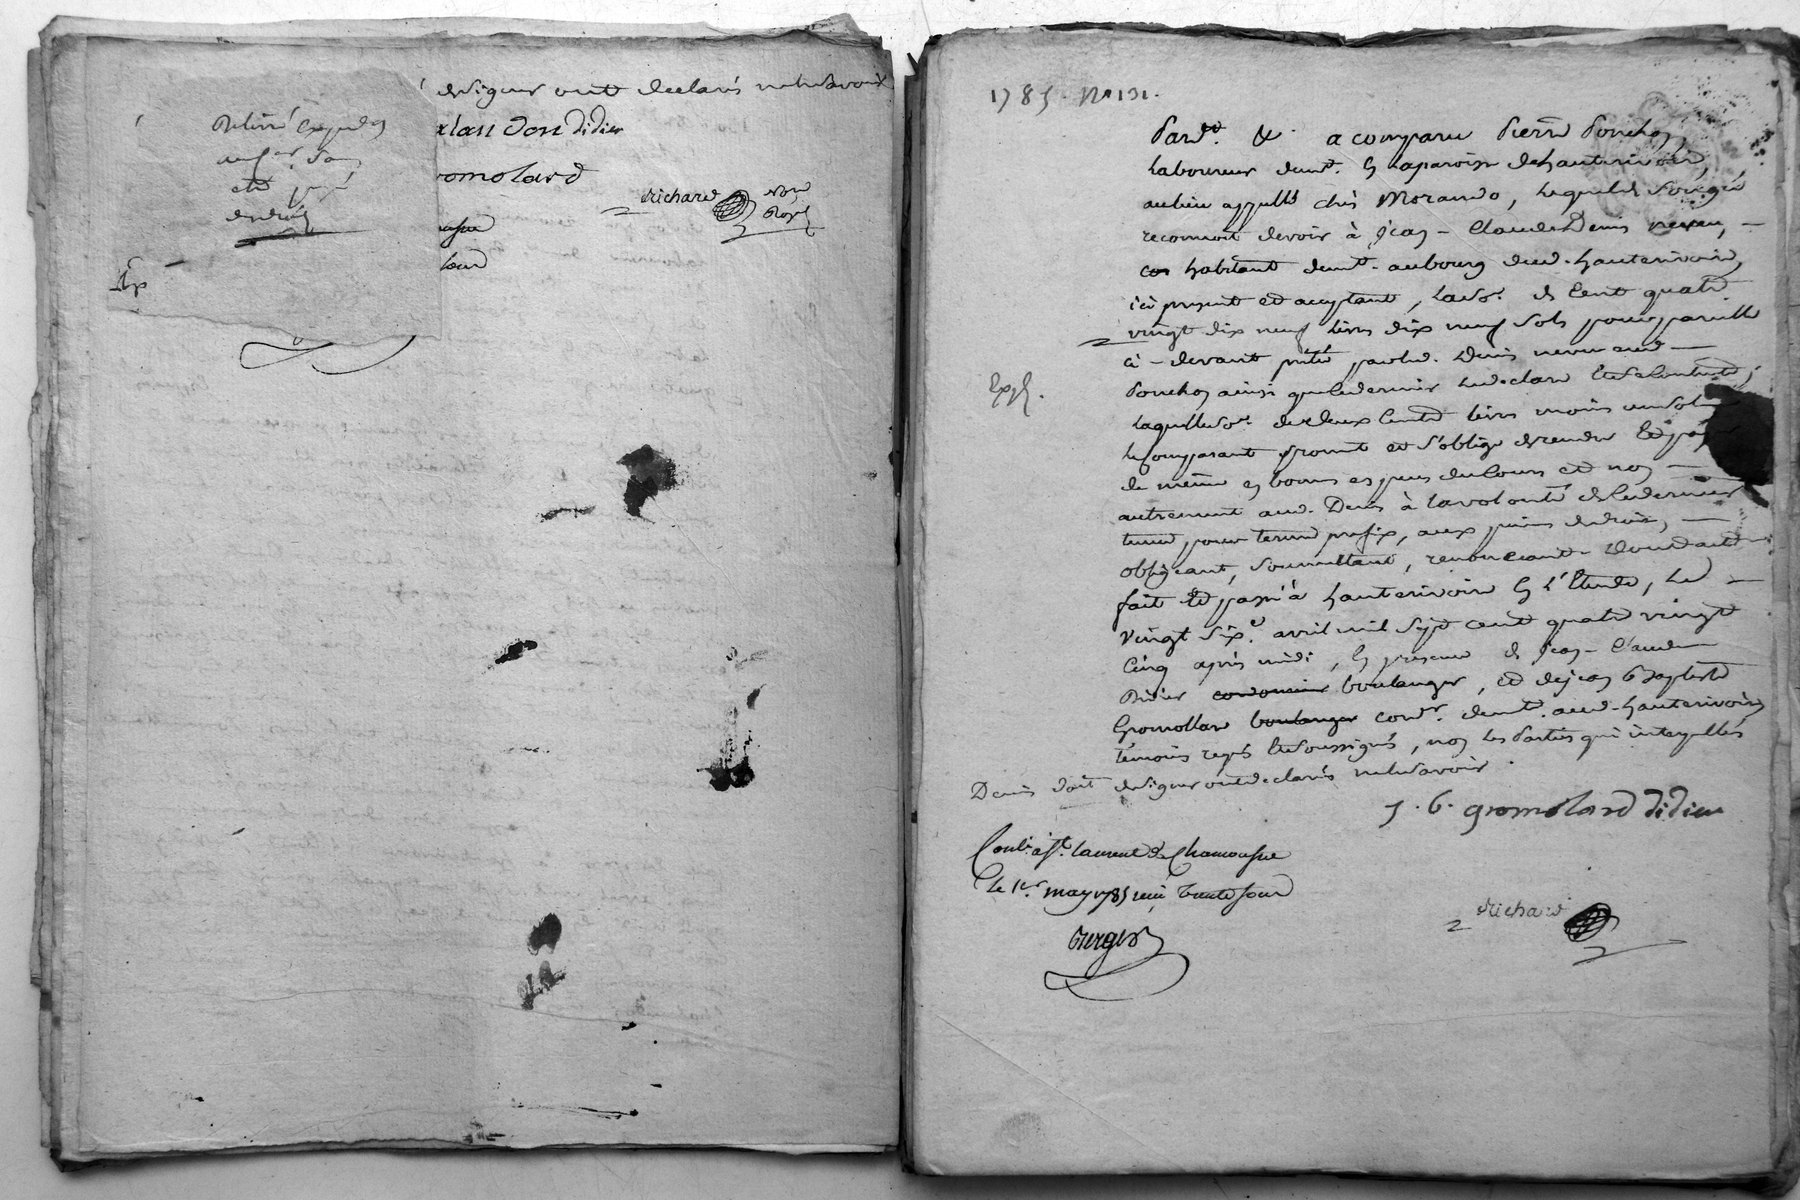 de signer ont declarés ne le savoir
alan Don didier
romolard
Richard Not
Royl
Delivré expedon
et
Exp
1785. No 131.
Pardt. &. a comparu Pierre Ponchon,
Laboureur demt. en la paroisse de hauterivoire,
au lieu appellé chès Morando, lequel de son gré
reconnoit devoir à jean - Claude Denis neveu, -
habitant demt. au bourg dud. hauterivoire,
ici present et acceptant, la so. de Cent quatre
vingt dix neuf livres dix neuf sols pour pareille
ci - devant prêté par led. Denis neveu aud -
Ponchon ainsi que ce dernier le declare et s'en contente,
laquelle so. de deux Cents livres moins un sol
le Comparant promet et s'oblige de rendre et
de même en bonnes especes du Cours et non -
autrement aud. Denis à la volonté de ce dernier
tenue pour terme prefix, aux peines de droit, -
obligeant, soumettant, renonceant. Dont acte
fait et passé à hauterivoire en l'Etude, le -
vingt six. avril mil sept cent quatre vingt
Cinq après midi, en presence de jean - Claude
Didier cordonnier boulanger, et de jean Baptiste
Gromollard boulanger cordr. demt. aud. hauterivoire
témoins requis et soussignés, non les Parties qui interpellés
Expn.
Denis doit de signer ont declarés ne le savoir.
J. B. gromolard didier
Conté. à St. laurent de Chamousse
le 1er. may 1785 reçu trente sous
Berger
Richard